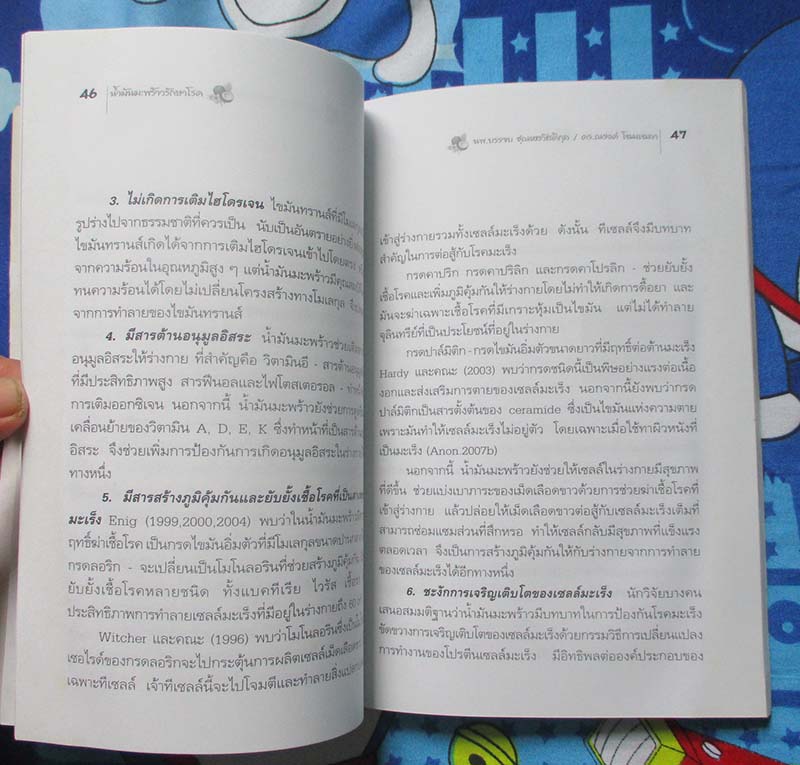 46 น้ำมันมะพร้าวรักษาโรค
3. ไม่เกิดการเติมไฮโดรเจน ไขมันทรานส์ที่มีโมเลกุล
รูปร่างไปจากธรรมชาติที่ควรเป็น นับเป็นอันตรายอย่างยิ่ง
ไขมันทรานส์เกิดได้จากการเติมไฮโดรเจนเข้าไปโดยตรง
จากความร้อนในอุณหภูมิสูง ๆ แต่น้ำมันมะพร้าวมีคุณสมบัติ
ทนความร้อนได้โดยไม่เปลี่ยนโครงสร้างทางโมเลกุล จึง
จากการทำลายของไขมันทรานส์
4. มีสารต้านอนุมูลอิสระ น้ำมันมะพร้าวช่วยเติมสาร
อนุมูลอิสระให้ร่างกาย ที่สำคัญคือ วิตามินอี - สารต้านอนุมูล
ที่มีประสิทธิภาพสูง สารฟีนอลและไฟโตสเตอรอล -
การเติมออกซิเจน นอกจากนี้ น้ำมันมะพร้าวยังช่วยการดูด
เคลื่อนย้ายของวิตามิน A, D, E, K ซึ่งทำหน้าที่เป็นสารต้าน
อิสระ จึงช่วยเพิ่มการป้องกันการเกิดอนุมูลอิสระในร่าง
ทางหนึ่ง
5. มีสารสร้างภูมิคุ้มกันและยับยั้งเชื้อโรคที่เป็น
มะเร็ง Enig (1999,2000,2004) พบว่าในน้ำมันมะพร้าว
ฤทธิ์ฆ่าเชื้อโรค เป็นกรดไขมันอิ่มตัวที่มีโมเลกุลขนาดปานกลาง
กรดลอริก - จะเปลี่ยนเป็นโมโนลอรินที่ช่วยสร้างภูมิคุ้มกัน
ยับยั้งเชื้อโรคหลายชนิด ทั้งแบคทีเรีย ไวรัส เชื้อรา
ประสิทธิภาพการทำลายเซลล์มะเร็งที่มีอยู่ในร่างกายถึง 60
Witcher และคณะ (1996) พบว่าโมโนลอรินซึ่งเป็น
เซอไรด์ของกรดลอริกจะไปกระตุ้นการผลิตเซลล์เม็ดเลือดขาว
เฉพาะทีเซลล์ เจ้าทีเซลล์นี้จะไปโจมตีและทำลายสิ่งแปลก
นพ.บรรจบ ชุณหสวัสดิกุล / ดร.ณรงค์ โฉมเฉลา 47
เข้าสู่ร่างกายรวมทั้งเซลล์มะเร็งด้วย ดังนั้น ทีเซลล์จึงมีบทบาท
สำคัญในการต่อสู้กับโรคมะเร็ง
กรดคาปริก กรดคาปริลิก และกรดคาโปรลิก - ช่วยยับยั้ง
เชื้อโรคและเพิ่มภูมิคุ้มกันให้ร่างกายโดยไม่ทำให้เกิดการดื้อยา และ
มันจะฆ่าเฉพาะเชื้อโรคที่มีเกราะหุ้มเป็นไขมัน แต่ไม่ได้ทำลาย
จุลินทรีย์ที่เป็นประโยชน์ที่อยู่ในร่างกาย
กรดปาล์มิติก - กรดไขมันอิ่มตัวขนาดยาวที่มีฤทธิ์ต่อต้านมะเร็ง
Hardy และคณะ (2003) พบว่ากรดชนิดนี้เป็นพิษอย่างแรงต่อเนื้อ
งอกและส่งเสริมการตายของเซลล์มะเร็ง นอกจากนี้ยังพบว่ากรด
ปาล์มิติกเป็นสารตั้งต้นของ ceramide ซึ่งเป็นไขมันแห่งความตาย
เพราะมันทำให้เซลล์มะเร็งไม่อยู่ตัว โดยเฉพาะเมื่อใช้ทาผิวหนังที่
เป็นมะเร็ง (Anon.2007b)
นอกจากนี้ น้ำมันมะพร้าวยังช่วยให้เซลล์ในร่างกายมีสุขภาพ
ที่ดีขึ้น ช่วยแบ่งเบาภาระของเม็ดเลือดขาวด้วยการช่วยฆ่าเชื้อโรคที่
เข้าสู่ร่างกาย แล้วปล่อยให้เม็ดเลือดขาวต่อสู้กับเซลล์มะเร็งเต็มที่
สามารถซ่อมแซมส่วนที่สึกหรอ ทำให้เซลล์กลับมีสุขภาพที่แข็งแรง
ตลอดเวลา จึงเป็นการสร้างภูมิคุ้มกันให้กับร่างกายจากการทำลาย
ของเซลล์มะเร็งได้อีกทางหนึ่ง
6. ชะงักการเจริญเติบโตของเซลล์มะเร็ง นักวิจัยบางคน
เสนอสมมติฐานว่าน้ำมันมะพร้าวมีบทบาทในการป้องกันโรคมะเร็ง
ขัดขวางการเจริญเติบโตของเซลล์มะเร็งด้วยกรรมวิธีการเปลี่ยนแปลง
การทำงานของโปรตีนเซลล์มะเร็ง มีอิทธิพลต่อองค์ประกอบของ